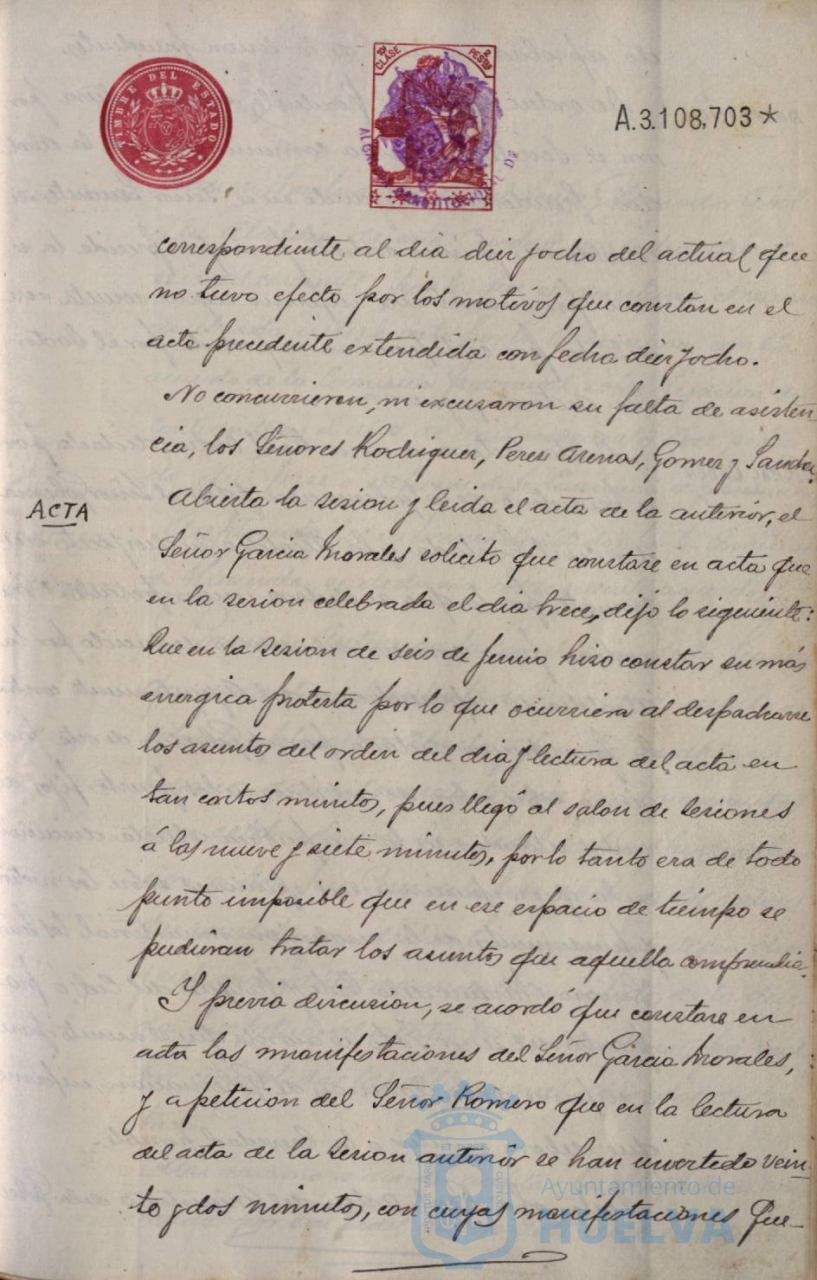 TIMBRE DEL ESTADO
10ª CLASE
2 PESTAS
A.3.108,703*
CONSTITUCIONAL DE
correspondiente al dia diez y ocho del actual que
no tuvo efecto por los motivos que constan en el
acta precedente extendida con fecha diez y ocho.
No concurrieron, ni excusaron su falta de asisten
cia, los Señores Rodriguez, Perez Arenas, Gomez y Sanchez.
ACTA
Abierta la sesion y leida el acta de la anterior, el
Señor Garcia Morales solicito que constase en acta que
en la sesion celebrada el dia trece, dijo lo siguiente:
Que en la sesion de seis de Junio hizo constar su más
energica protesta por lo que ocurriera al despacharse
los asuntos del orden del dia y lectura del acta en
tan cortos minutos, pues llegó al salon de sesiones
á las nueve y siete minutos, por lo tanto era de todo
punto imposible que en ese espacio de tiempo se
pudieran tratar los asuntos que aquella comprendia.
Y previa discusion, se acordó que constase en
acta las manifestaciones del Señor Garcia Morales,
y a peticion del Señor Romero que en la lectura
del acta de la sesion anterior se han invertido vein-
te y dos minutos, con cuyas manifestaciones que-
Ayuntamiento de
HUELVA